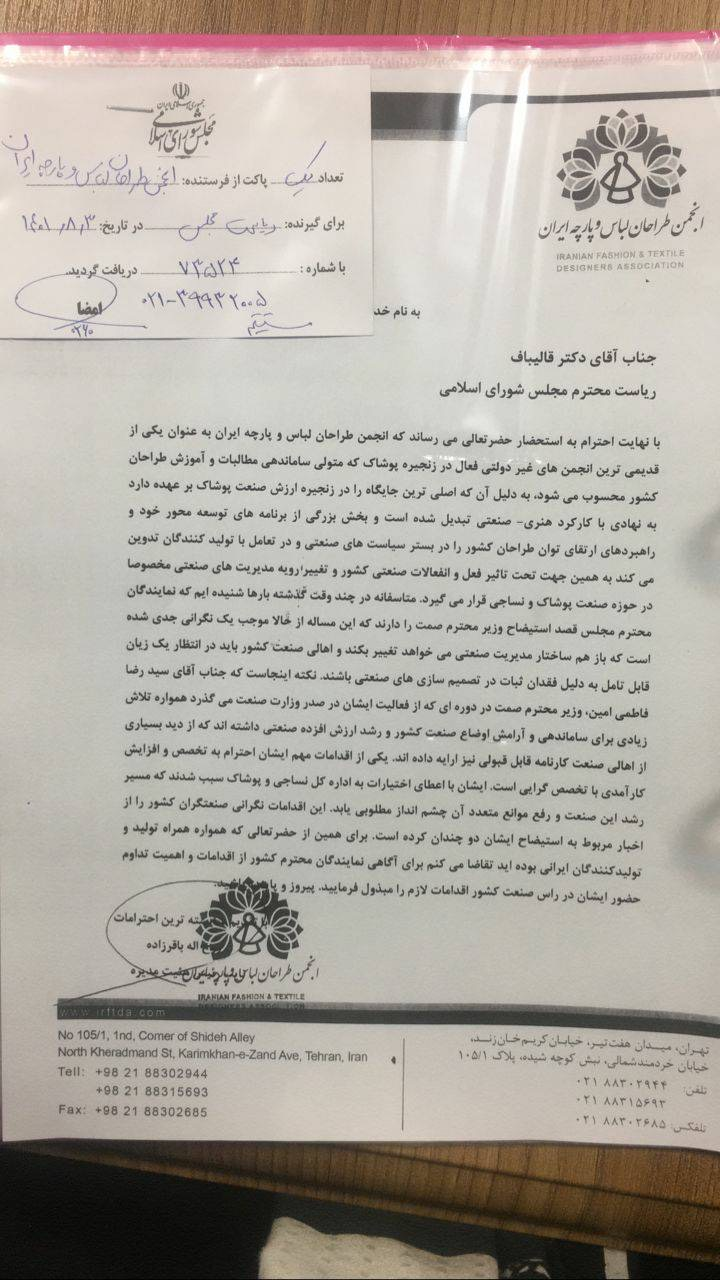 جمهوری اسلامی ایران
مجلس شورای اسلامی
تعداد یک پاکت از فرستنده: انجمن طراحان لباس و پارچه ایران
برای گیرنده: ریاست مجلس در تاریخ: ۱۴۰۱/۸/۳
با شماره: ۷۳۵۲۴ دریافت گردید.
امضا
۰۲۱-۳۹۹۳۲۰۰۵
انجمن طراحان لباس و پارچه ایران
IRANIAN FASHION & TEXTILE
DESIGNERS ASSOCIATION
به نام خد
جناب آقای دکتر قالیباف
ریاست محترم مجلس شورای اسلامی
با نهایت احترام به استحضار حضرتعالی می رساند که انجمن طراحان لباس و پارچه ایران به عنوان یکی از
قدیمی ترین انجمن های غیر دولتی فعال در زنجیره پوشاک که متولی ساماندهی مطالبات و آموزش طراحان
کشور محسوب می شود، به دلیل آن که اصلی ترین جایگاه را در زنجیره ارزش صنعت پوشاک بر عهده دارد
به نهادی با کارکرد هنری- صنعتی تبدیل شده است و بخش بزرگی از برنامه های توسعه محور خود و
راهبردهای ارتقای توان طراحان کشور را در بستر سیاست های صنعتی و در تعامل با تولید کنندگان تدوین
می کند به همین جهت تحت تاثیر فعل و انفعالات صنعتی کشور و تغییر رویه مدیریت های صنعتی مخصوصا
در حوزه صنعت پوشاک و نساجی قرار می گیرد. متاسفانه در چند وقت گذشته بارها شنیده ایم که نمایندگان
محترم مجلس قصد استیضاح وزیر محترم صمت را دارند که این مساله از حالا موجب یک نگرانی جدی شده
است که باز هم ساختار مدیریت صنعتی می خواهد تغییر بکند و اهالی صنعت کشور باید در انتظار یک زیان
قابل تامل به دلیل فقدان ثبات در تصمیم سازی های صنعتی باشند. نکته اینجاست که جناب آقای سید رضا
فاطمی امین، وزیر محترم صمت در دوره ای که از فعالیت ایشان در صدر وزارت صنعت می گذرد همواره تلاش
زیادی برای ساماندهی و آرامش اوضاع صنعت کشور و رشد ارزش افزده صنعتی داشته اند که از دید بسیاری
از اهالی صنعت کارنامه قابل قبولی نیز ارایه داده اند. یکی از اقدامات مهم ایشان احترام به تخصص و افزایش
کارآمدی با تخصص گرایی است. ایشان با اعطای اختیارات به اداره کل نساجی و پوشاک سبب شدند که مسیر
رشد این صنعت و رفع موانع متعدد آن چشم انداز مطلوبی یابد. این اقدامات نگرانی صنعتگران کشور را از
اخبار مربوط به استیضاح ایشان دو چندان کرده است. برای همین از حضرتعالی که همواره همراه تولید و
تولیدکنندگان ایرانی بوده اید تقاضا می کنم برای آگاهی نمایندگان محترم کشور از اقدامات و اهمیت تداوم
حضور ایشان در راس صنعت کشور اقدامات لازم را مبذول فرمایید. پیروز و
ترین احترامات
اله باقرزاده
هیئت مدیره
انجمن طراحان لباس و پارچه ایران
IRANIAN FASHION & TEXTILE
DESIGNERS ASSOCIATION
www.irftda.com
No 105/1, 1nd, Corner of Shideh Alley
North Kheradmand St, Karimkhan-e-Zand Ave, Tehran, Iran
Tell: +98 21 88302944
+98 21 88315693
Fax: +98 21 88302685
تهران، میدان هفت تیر، خیابان کریم خان زند،
خیابان خردمند شمالی، نبش کوچه شیده، پلاک ۱۰۵/۱
تلفن: ۰۲۱ ۸۸۳۰۲۹۴۴
۰۲۱ ۸۸۳۱۵۶۹۳
تلفکس: ۰۲۱ ۸۸۳۰۲۶۸۵